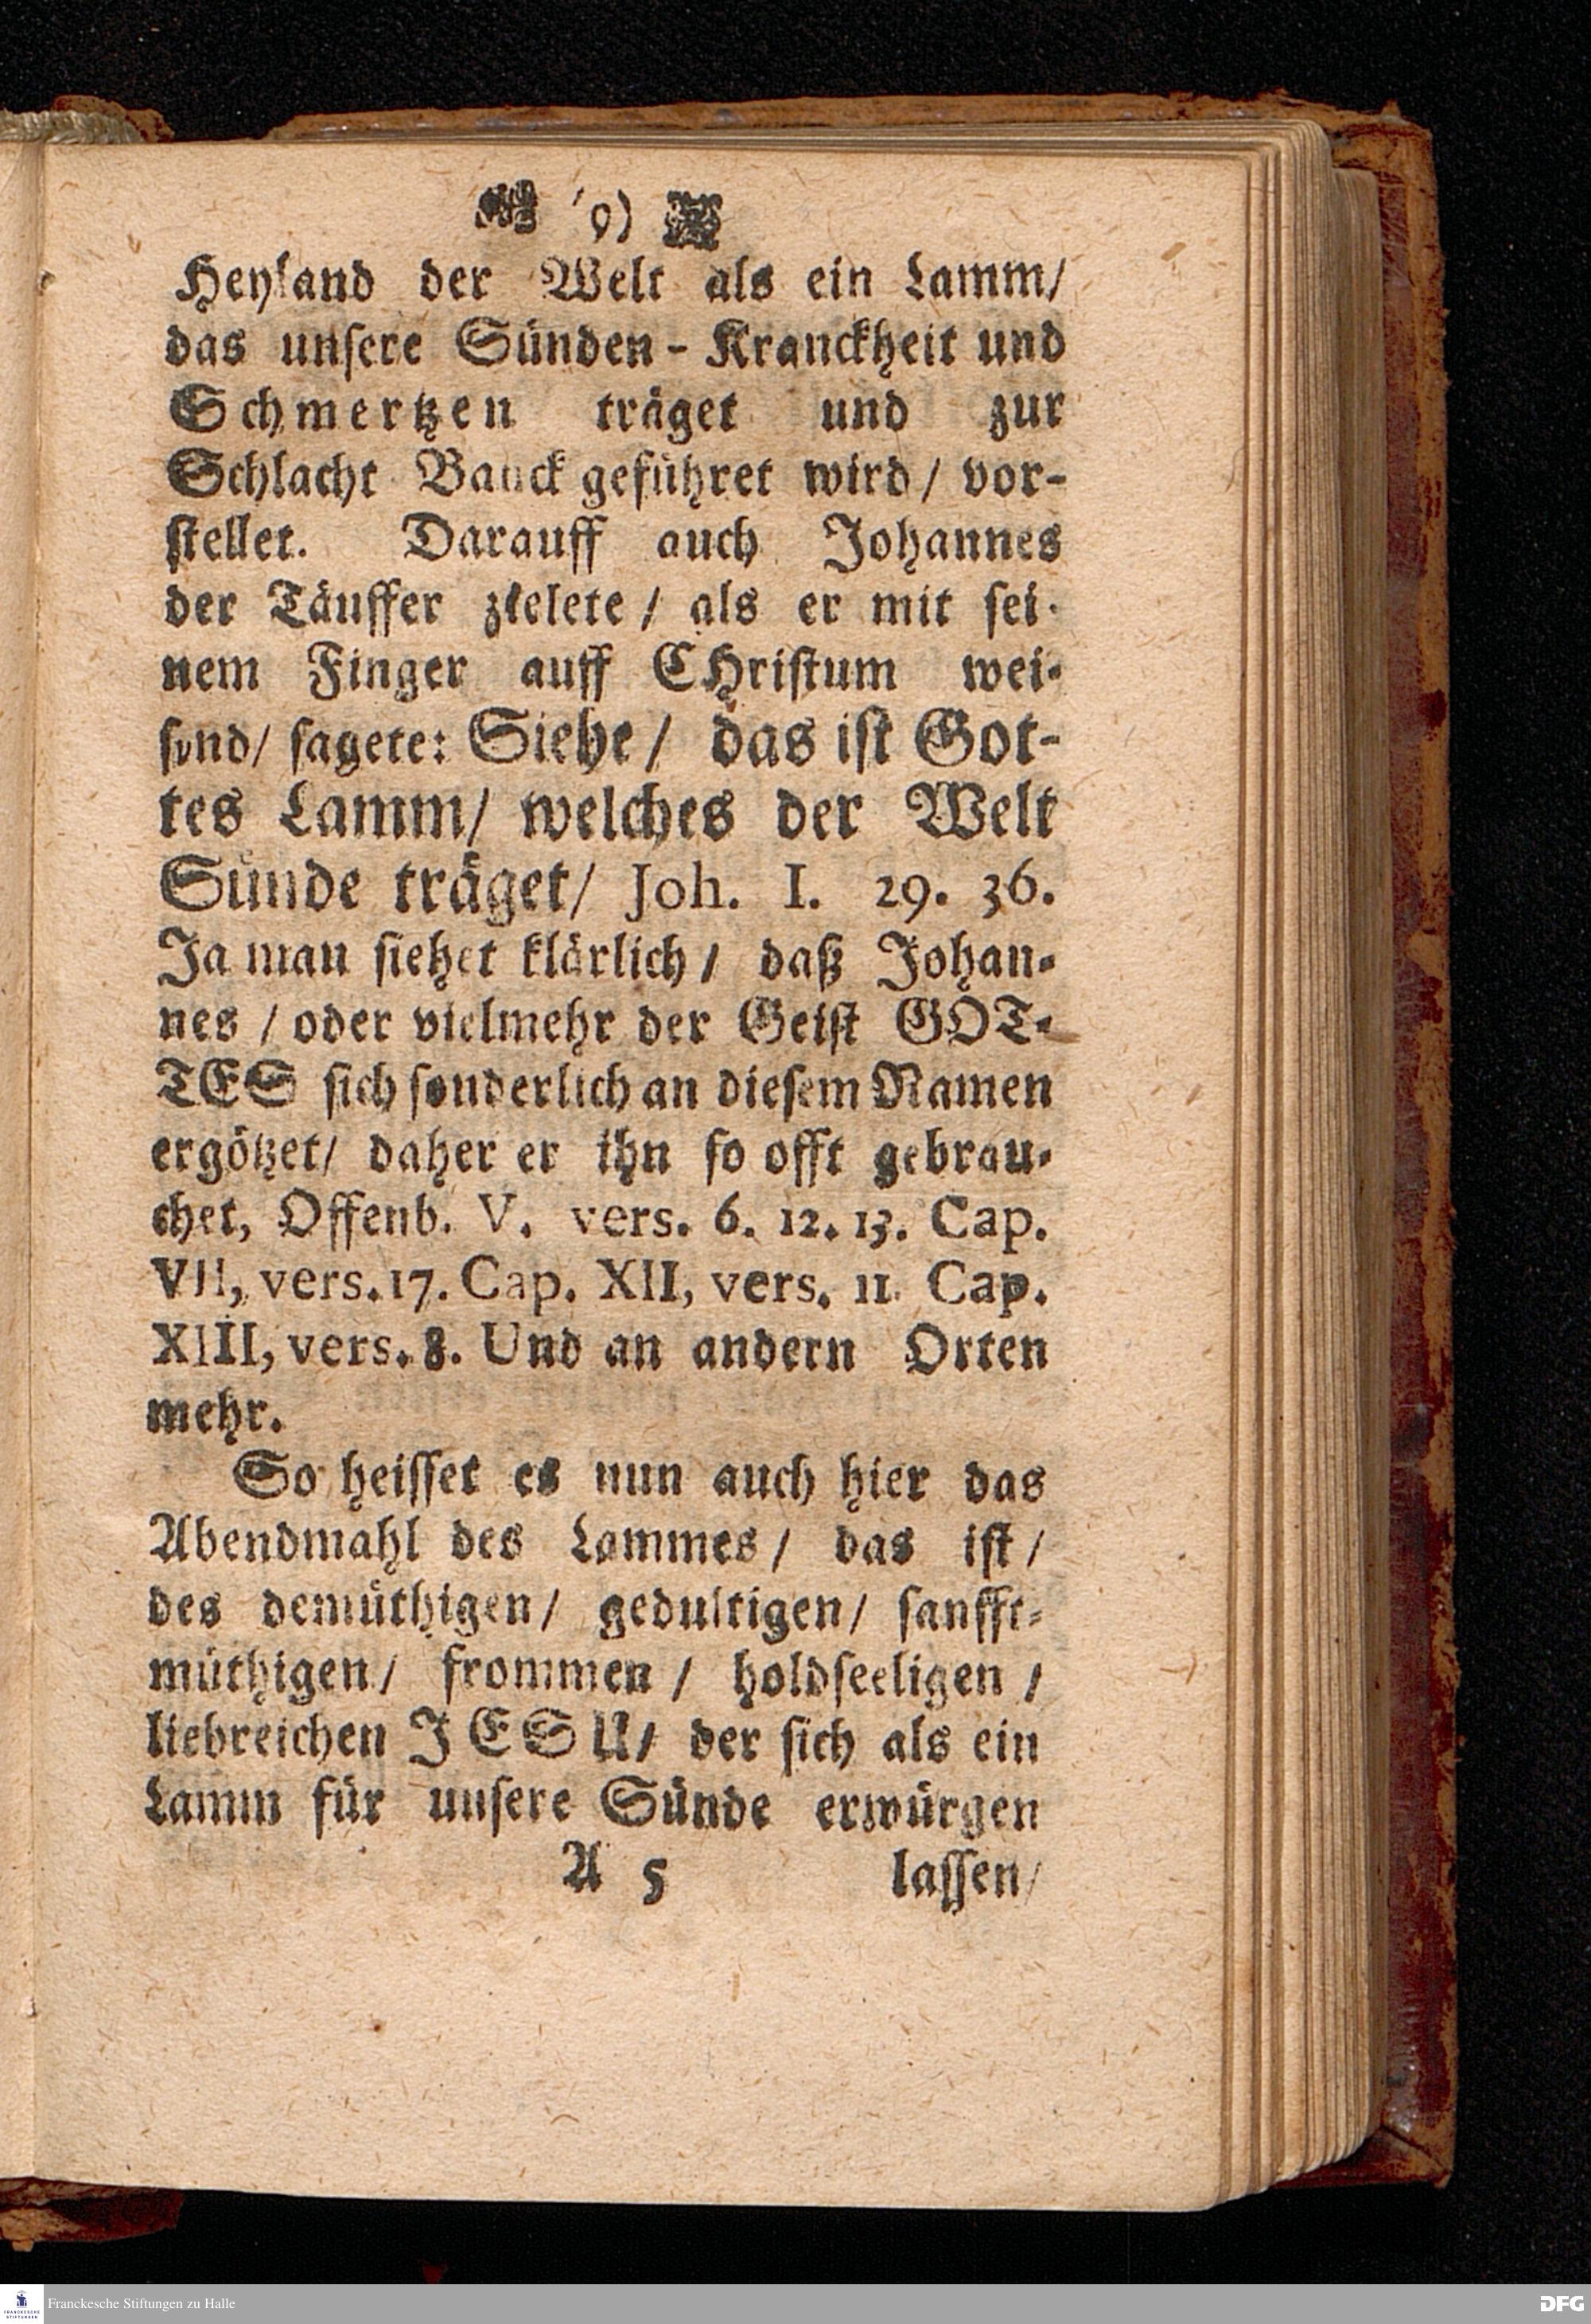 (9)
Heyland der Welt als ein Lamm/
das unsere Sünden - Kranckheit und
Schmertzen träget und zur
Schlacht Banck geführet wird / vor-
stellet. Darauff auch Johannes
der Täuffer zielete / als er mit sei-
nem Finger auff CHristum wei-
send/ sagete: Siehe / das ist Got-
tes Lamm/ welches der Welt
Sünde träget/ Joh. I. 29. 36.
Ja man siehet klärlich / daß Johan-
nes / oder vielmehr der Geist GOT-
TES sich sonderlich an diesem Namen
ergötzet/ daher er ihn so offt gebrau-
chet, Offenb. V. vers. 6. 12. 13. Cap.
VII, vers. 17. Cap. XII, vers. 11. Cap.
XIII, vers. 8. Und an andern Orten
mehr.
So heisset es nun auch hier das
Abendmahl des Lammes / das ist /
des demüthigen/ gedultigen/ sanfft-
müthigen/ frommen / holdseeligen /
liebreichen JESU/ der sich als ein
Lamm für unsere Sünde erwürgen
A 5 lassen/
Franckesche Stiftungen zu Halle
FRANCKESCHE
STIFTUNGEN
DFG